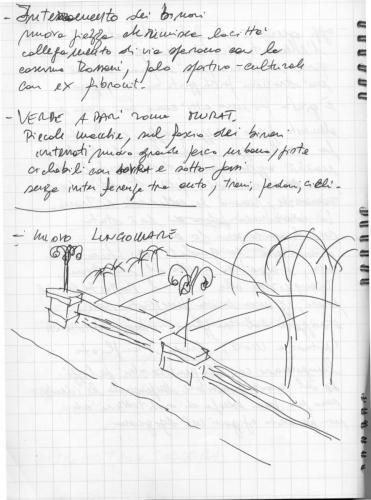 - Interramento dei binari
nuova piazza che riunisce la città
collegamento di via Sparano con la
caserma Rossani, polo sportivo-culturale
con ex Fibronit.
- VERDE A BARI zona MURAT.
Piccole macchie, sul fascio dei binari
interrati nuovo grande parco urbano, piste
ciclabili con SOVRA e sotto-passi
senza interferenze tra auto, treni, pedoni, cicli.
- NUOVO LUNGOMARE